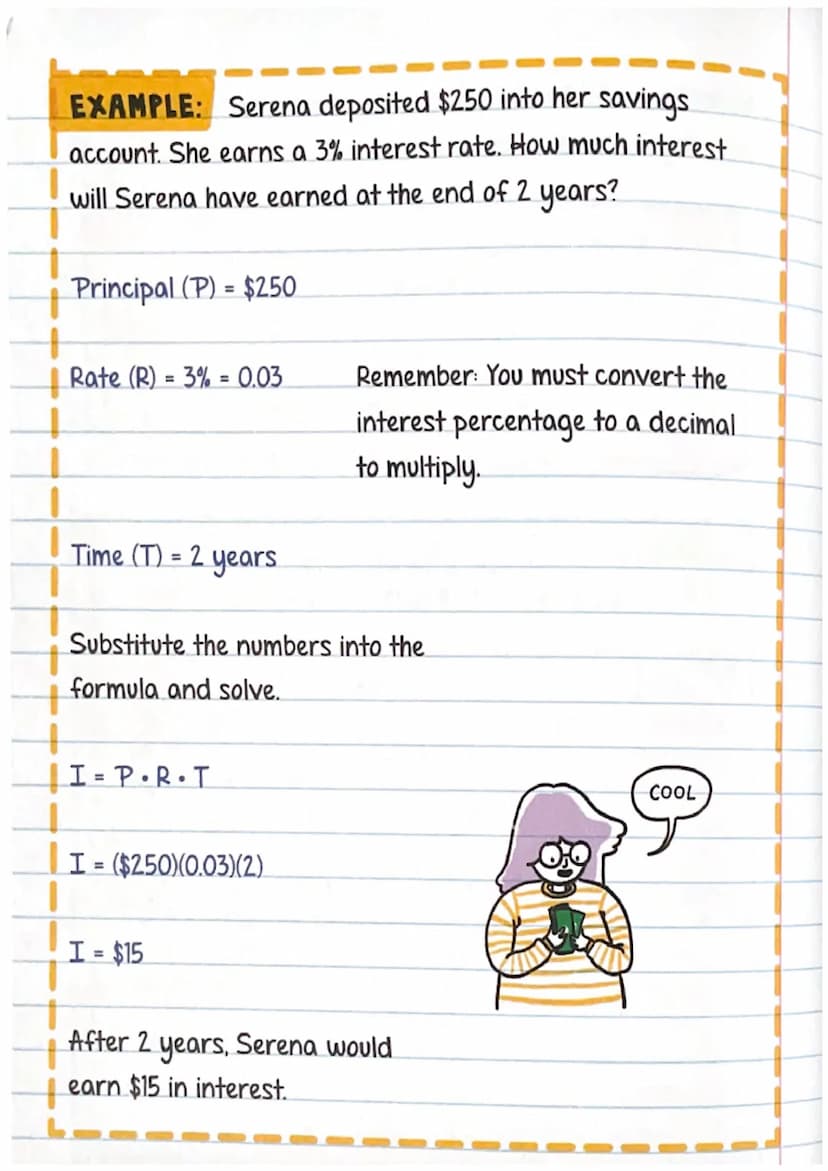 EXAMPLE: Serena deposited $250 into her savings
account. She earns a 3% interest rate. How much interest
will Serena have earned at the end of 2 years?
Principal (P) = $250
Rate (R) = 3% = 0.03
Remember: You must convert the
interest percentage to a decimal
to multiply.
Time (T) = 2 years
Substitute the numbers into the
formula and solve.
I = P • R • T
I = ($250)(0.03)(2)
I = $15
COOL
After 2 years, Serena would
earn $15 in interest.